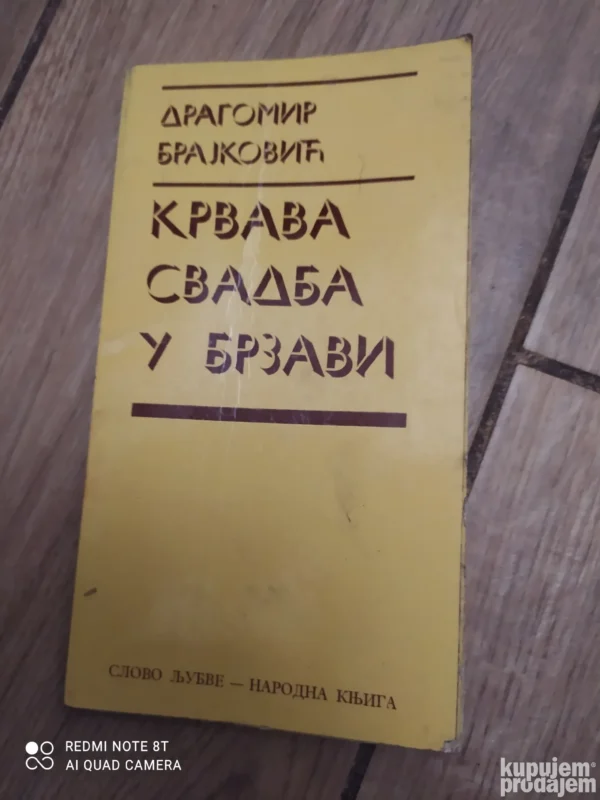 ДРАГОМИР
БРАЈКОВИЋ
КРВАВА
СВАДБА
У БРЗАВИ
СЛОВО ЉУБВЕ — НАРОДНА КЊИГА
REDMI NOTE 8T
AI QUAD CAMERA
kupujem
prodajem